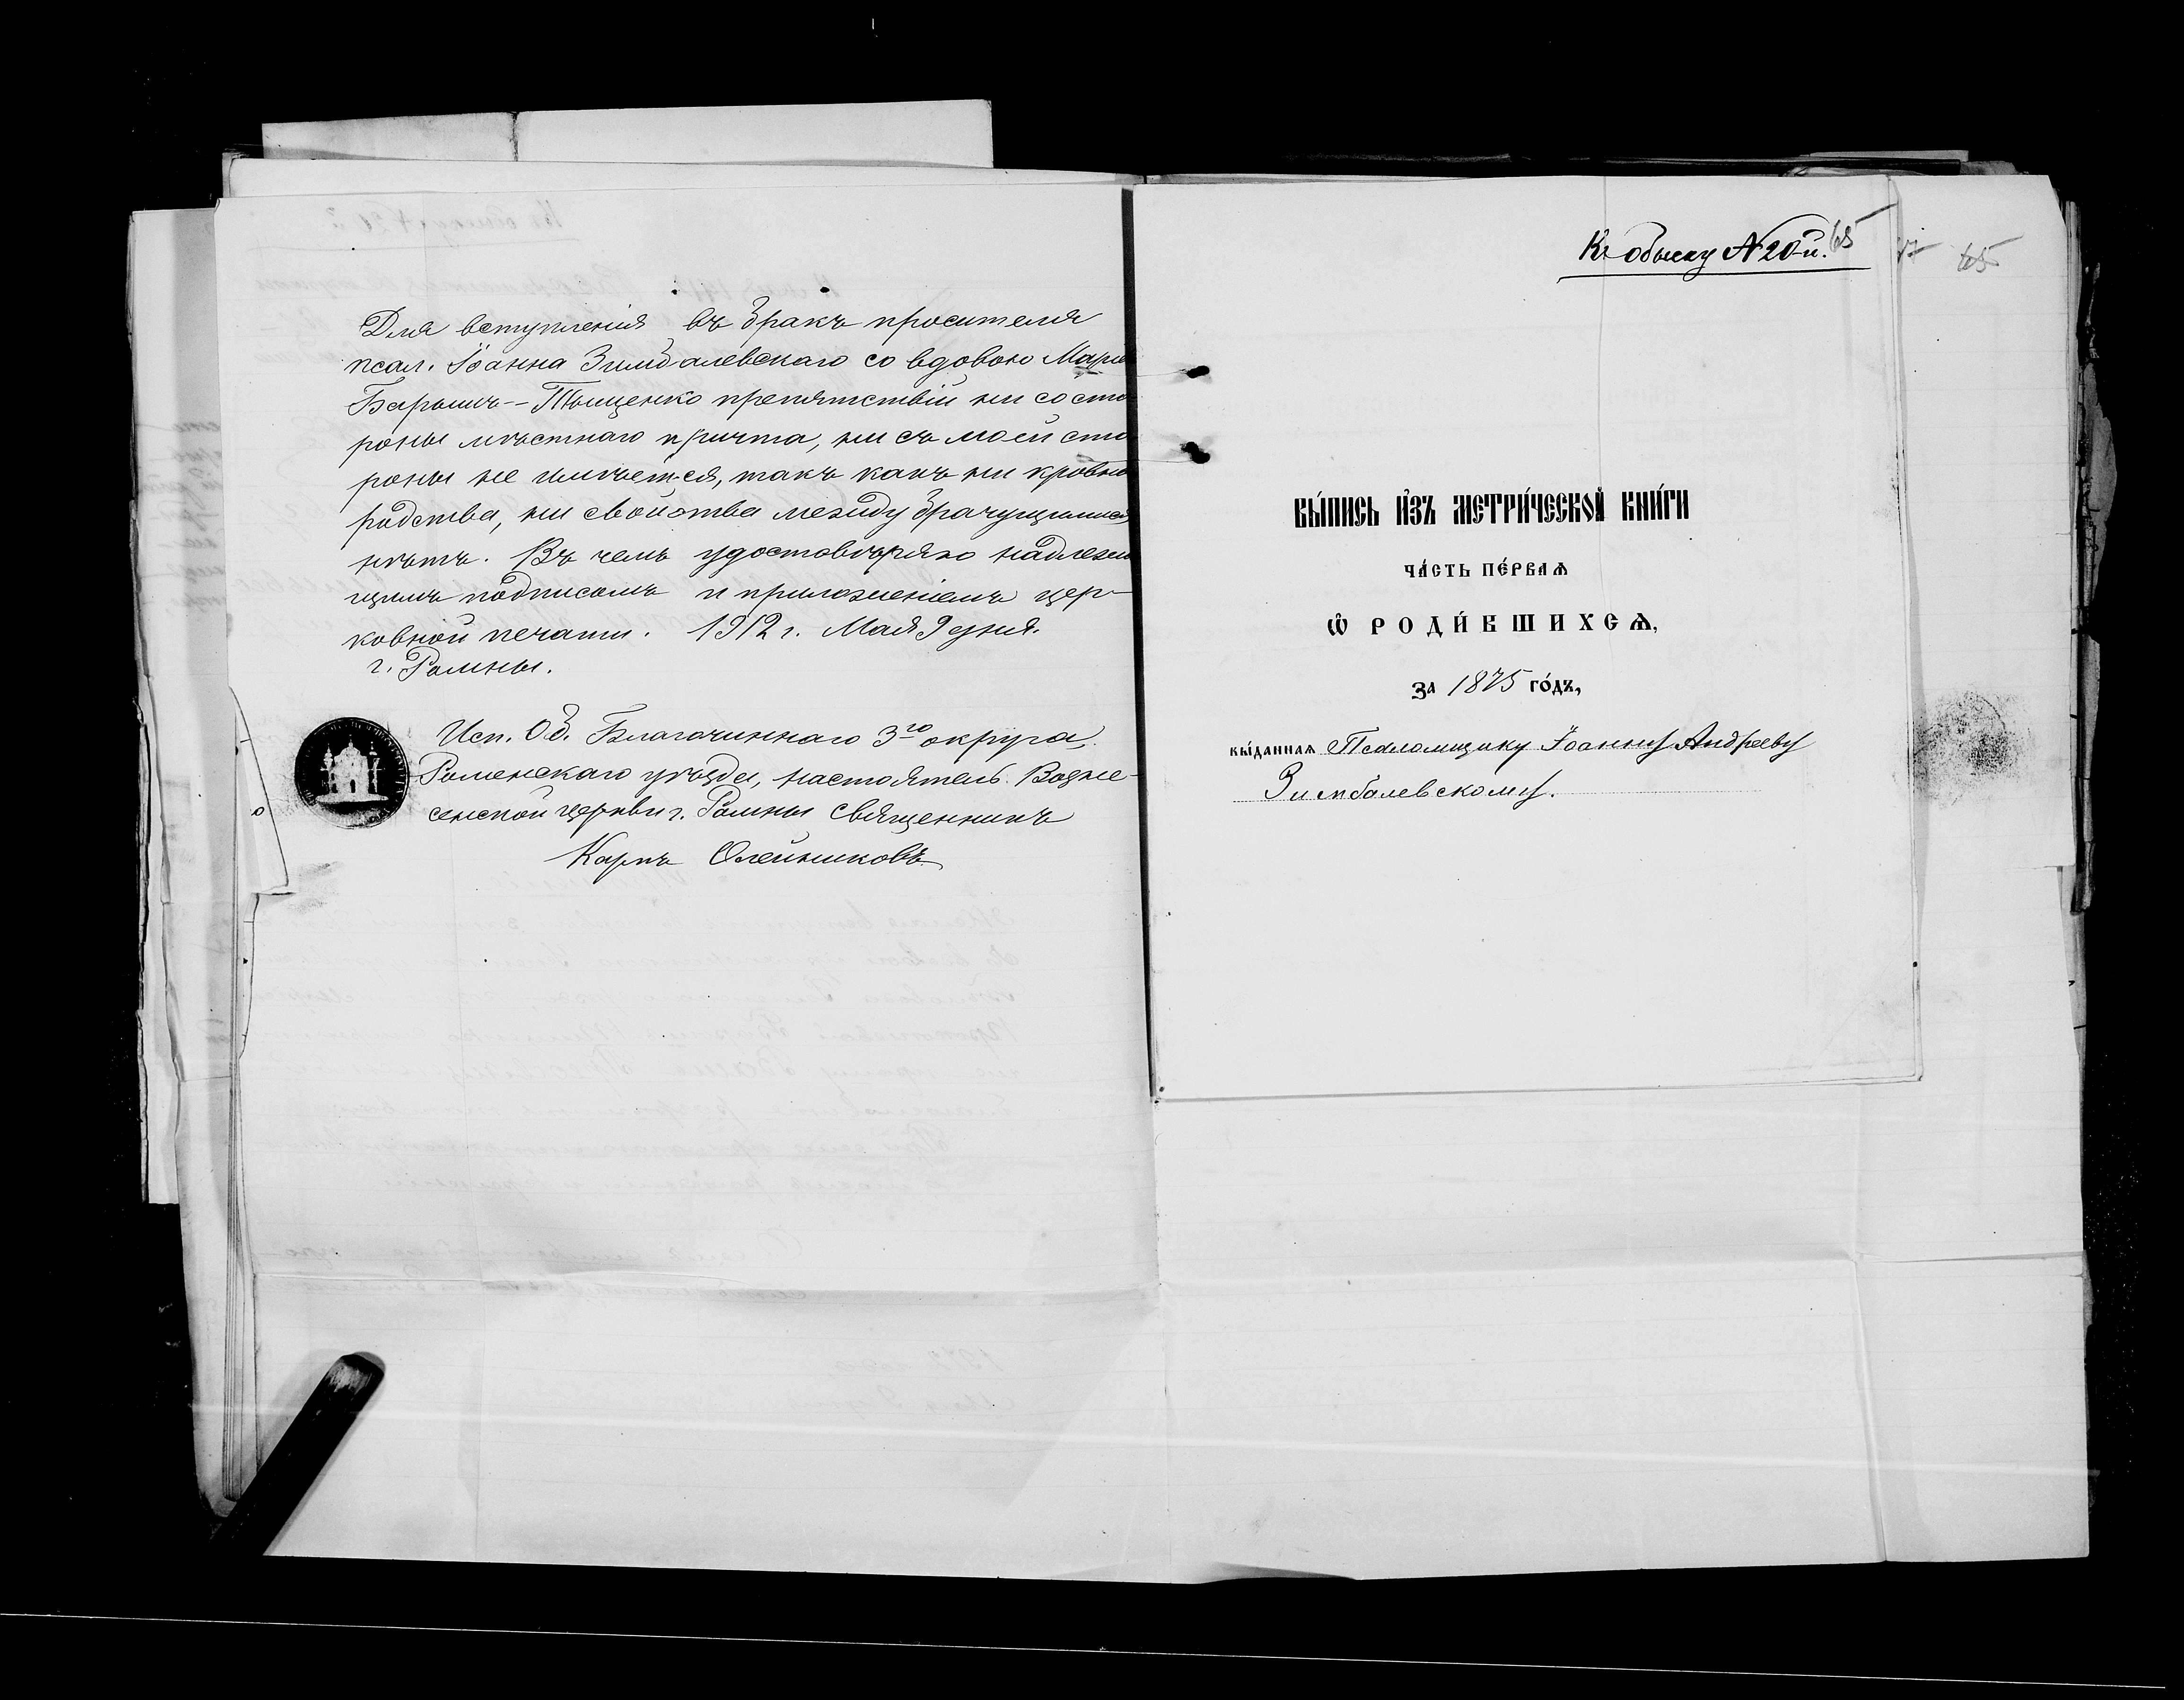 Для вступленія въ бракъ просителя
псал. Іоанна Зимбалевскаго со вдовою Марие
Барышъ-Тыщенко препятствій ни со сто
роны мѣстнаго причта, ни съ моей сто
роны не имѣется, такъ какъ ни кровно
родства, ни свойства между брачущимися
нѣтъ. Въ чемъ удостовѣряю надлежа
щимъ подписомъ и приложеніемъ цер-
ковной печати. 1912 г. Мая 9 дня.
г. Ромны.
Исп. Об. Благочиннаго 3го округа,
Роменскаго уѣзда, настоятель Возне-
сенской церкви г. Ромны священникъ
Карпъ Олейниковъ
Къ обыску № 20-й. 65
65
ВЫ́ПИСЬ И҆ЗЪ МЕТРИ́ЧЕСКОЙ КНИ́ГИ
ЧА́СТЬ ПЕ́РВАѦ
Ѽ РОДИ́ВШИХСѦ,
ЗА 1875 ГО́ДЪ,
ВЫ́ДАННАѦ Псаломщику Іоанну Андрееву
Зимбалевскому.